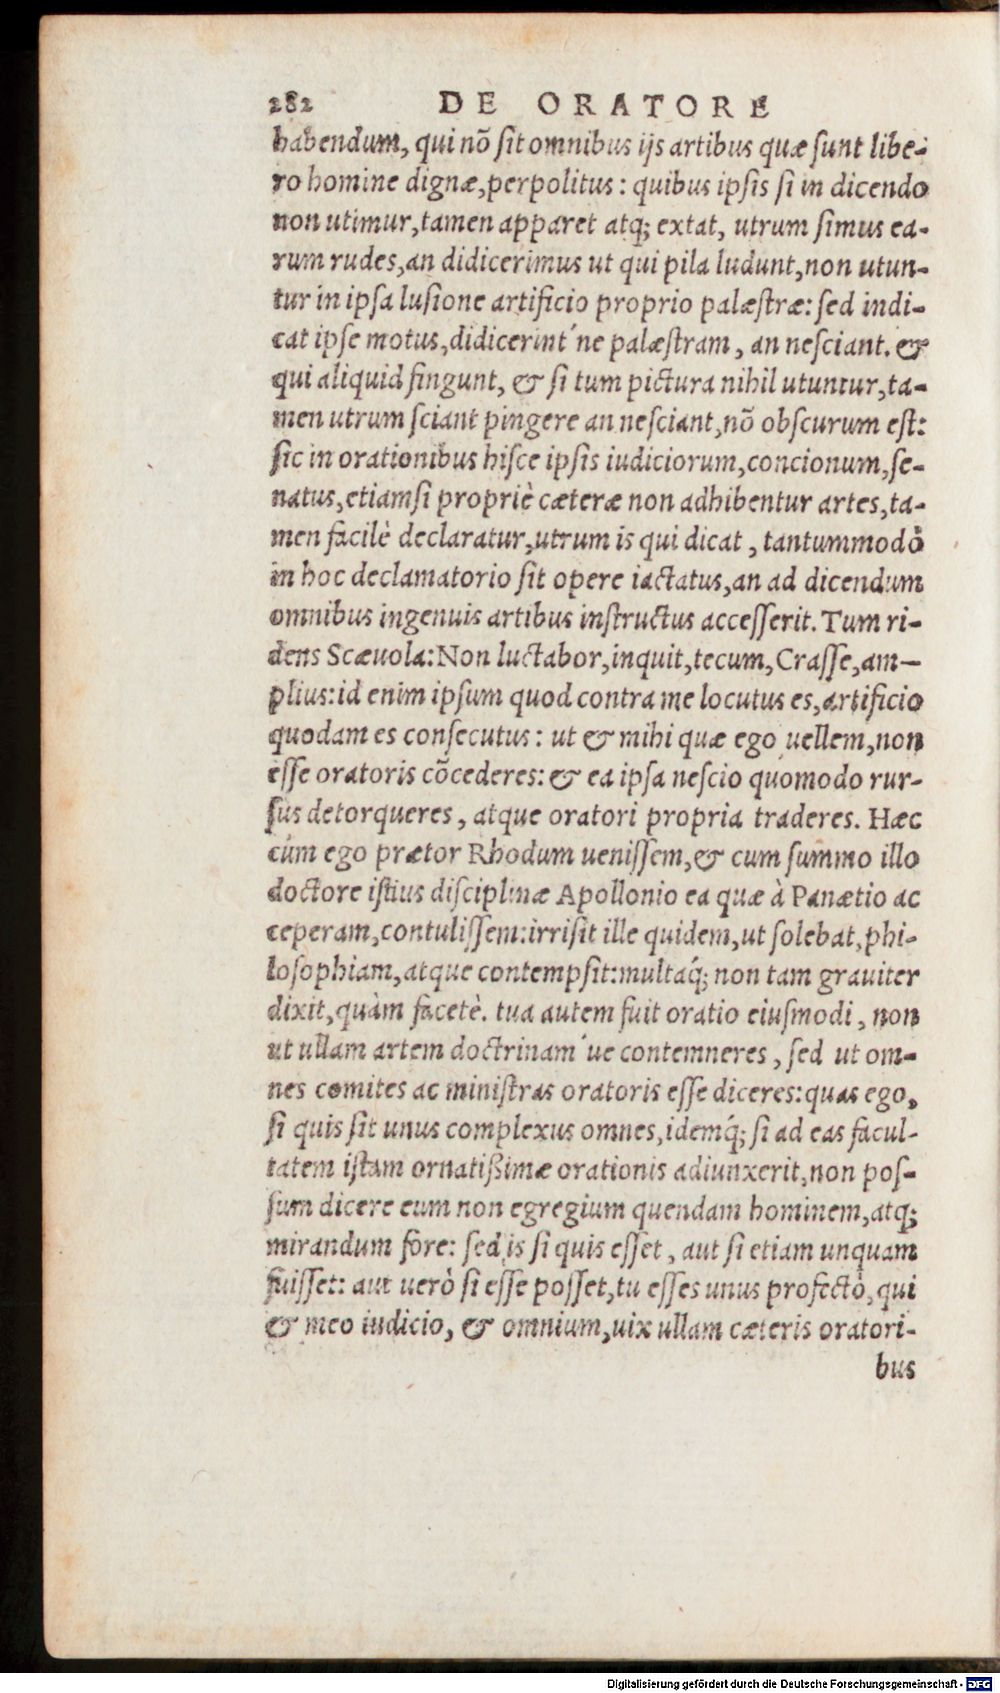 282 DE ORATORE
habendum, qui nõ ſit omnibus ijs artibus quæ ſunt libe-
ro homine dignæ, perpolitus: quibus ipſis ſi in dicendo
non utimur, tamen apparet atq; extat, utrum ſimus ea-
rum rudes, an didicerimus ut qui pila ludunt, non utun-
tur in ipſa luſione artificio proprio palæſtræ: ſed indi-
cat ipſe motus, didicerint´ne palæſtram, an neſciant. &
qui aliquid fingunt, & ſi tum pictura nihil utuntur, ta-
men utrum ſciant pingere an neſciant, nõ obſcurum eſt:
ſic in orationibus hiſce ipſis iudiciorum, concionum, ſe-
natus, etiamſi propriè cæteræ non adhibentur artes, ta-
men facilè declaratur, utrum is qui dicat, tantummodò
in hoc declamatorio ſit opere iactatus, an ad dicendum
omnibus ingenuis artibus inſtructus acceſſerit. Tum ri-
dens Scæuola: Non luctabor, inquit, tecum, Craſſe, am-
plius: id enim ipſum quod contra me locutus es, artificio
quodam es conſecutus: ut & mihi quæ ego uellem, non
eſſe oratoris cõcederes: & ea ipſa neſcio quomodo rur-
ſus detorqueres, atque oratori propria traderes. Hæc
cúm ego prætor Rhodum ueniſſem, & cum ſummo illo
doctore iſtius diſciplinæ Apollonio ea quæ à Panætio ac
ceperam, contuliſſem: irriſit ille quidem, ut ſolebat, phi-
loſophiam, atque contempſit: multaq́; non tam grauiter
dixit, quàm facetè. tua autem fuit oratio eiuſmodi, non
ut ullam artem doctrinam´ue contemneres, ſed ut om-
nes comites ac miniſtras oratoris eſſe diceres: quas ego,
ſi quis ſit unus complexus omnes, idemq́; ſi ad eas facul-
tatem iſtam ornatißimæ orationis adiunxerit, non poſ-
ſum dicere eum non egregium quendam hominem, atq;
mirandum fore: ſed is ſi quis eſſet, aut ſi etiam unquam
fuiſſet: aut uerò ſi eſſe poſſet, tu eſſes unus profectò, qui
& meo iudicio, & omnium, uix ullam cæteris oratori-
bus
Digitalisierung gefördert durch die Deutsche Forschungsgemeinschaft - DFG